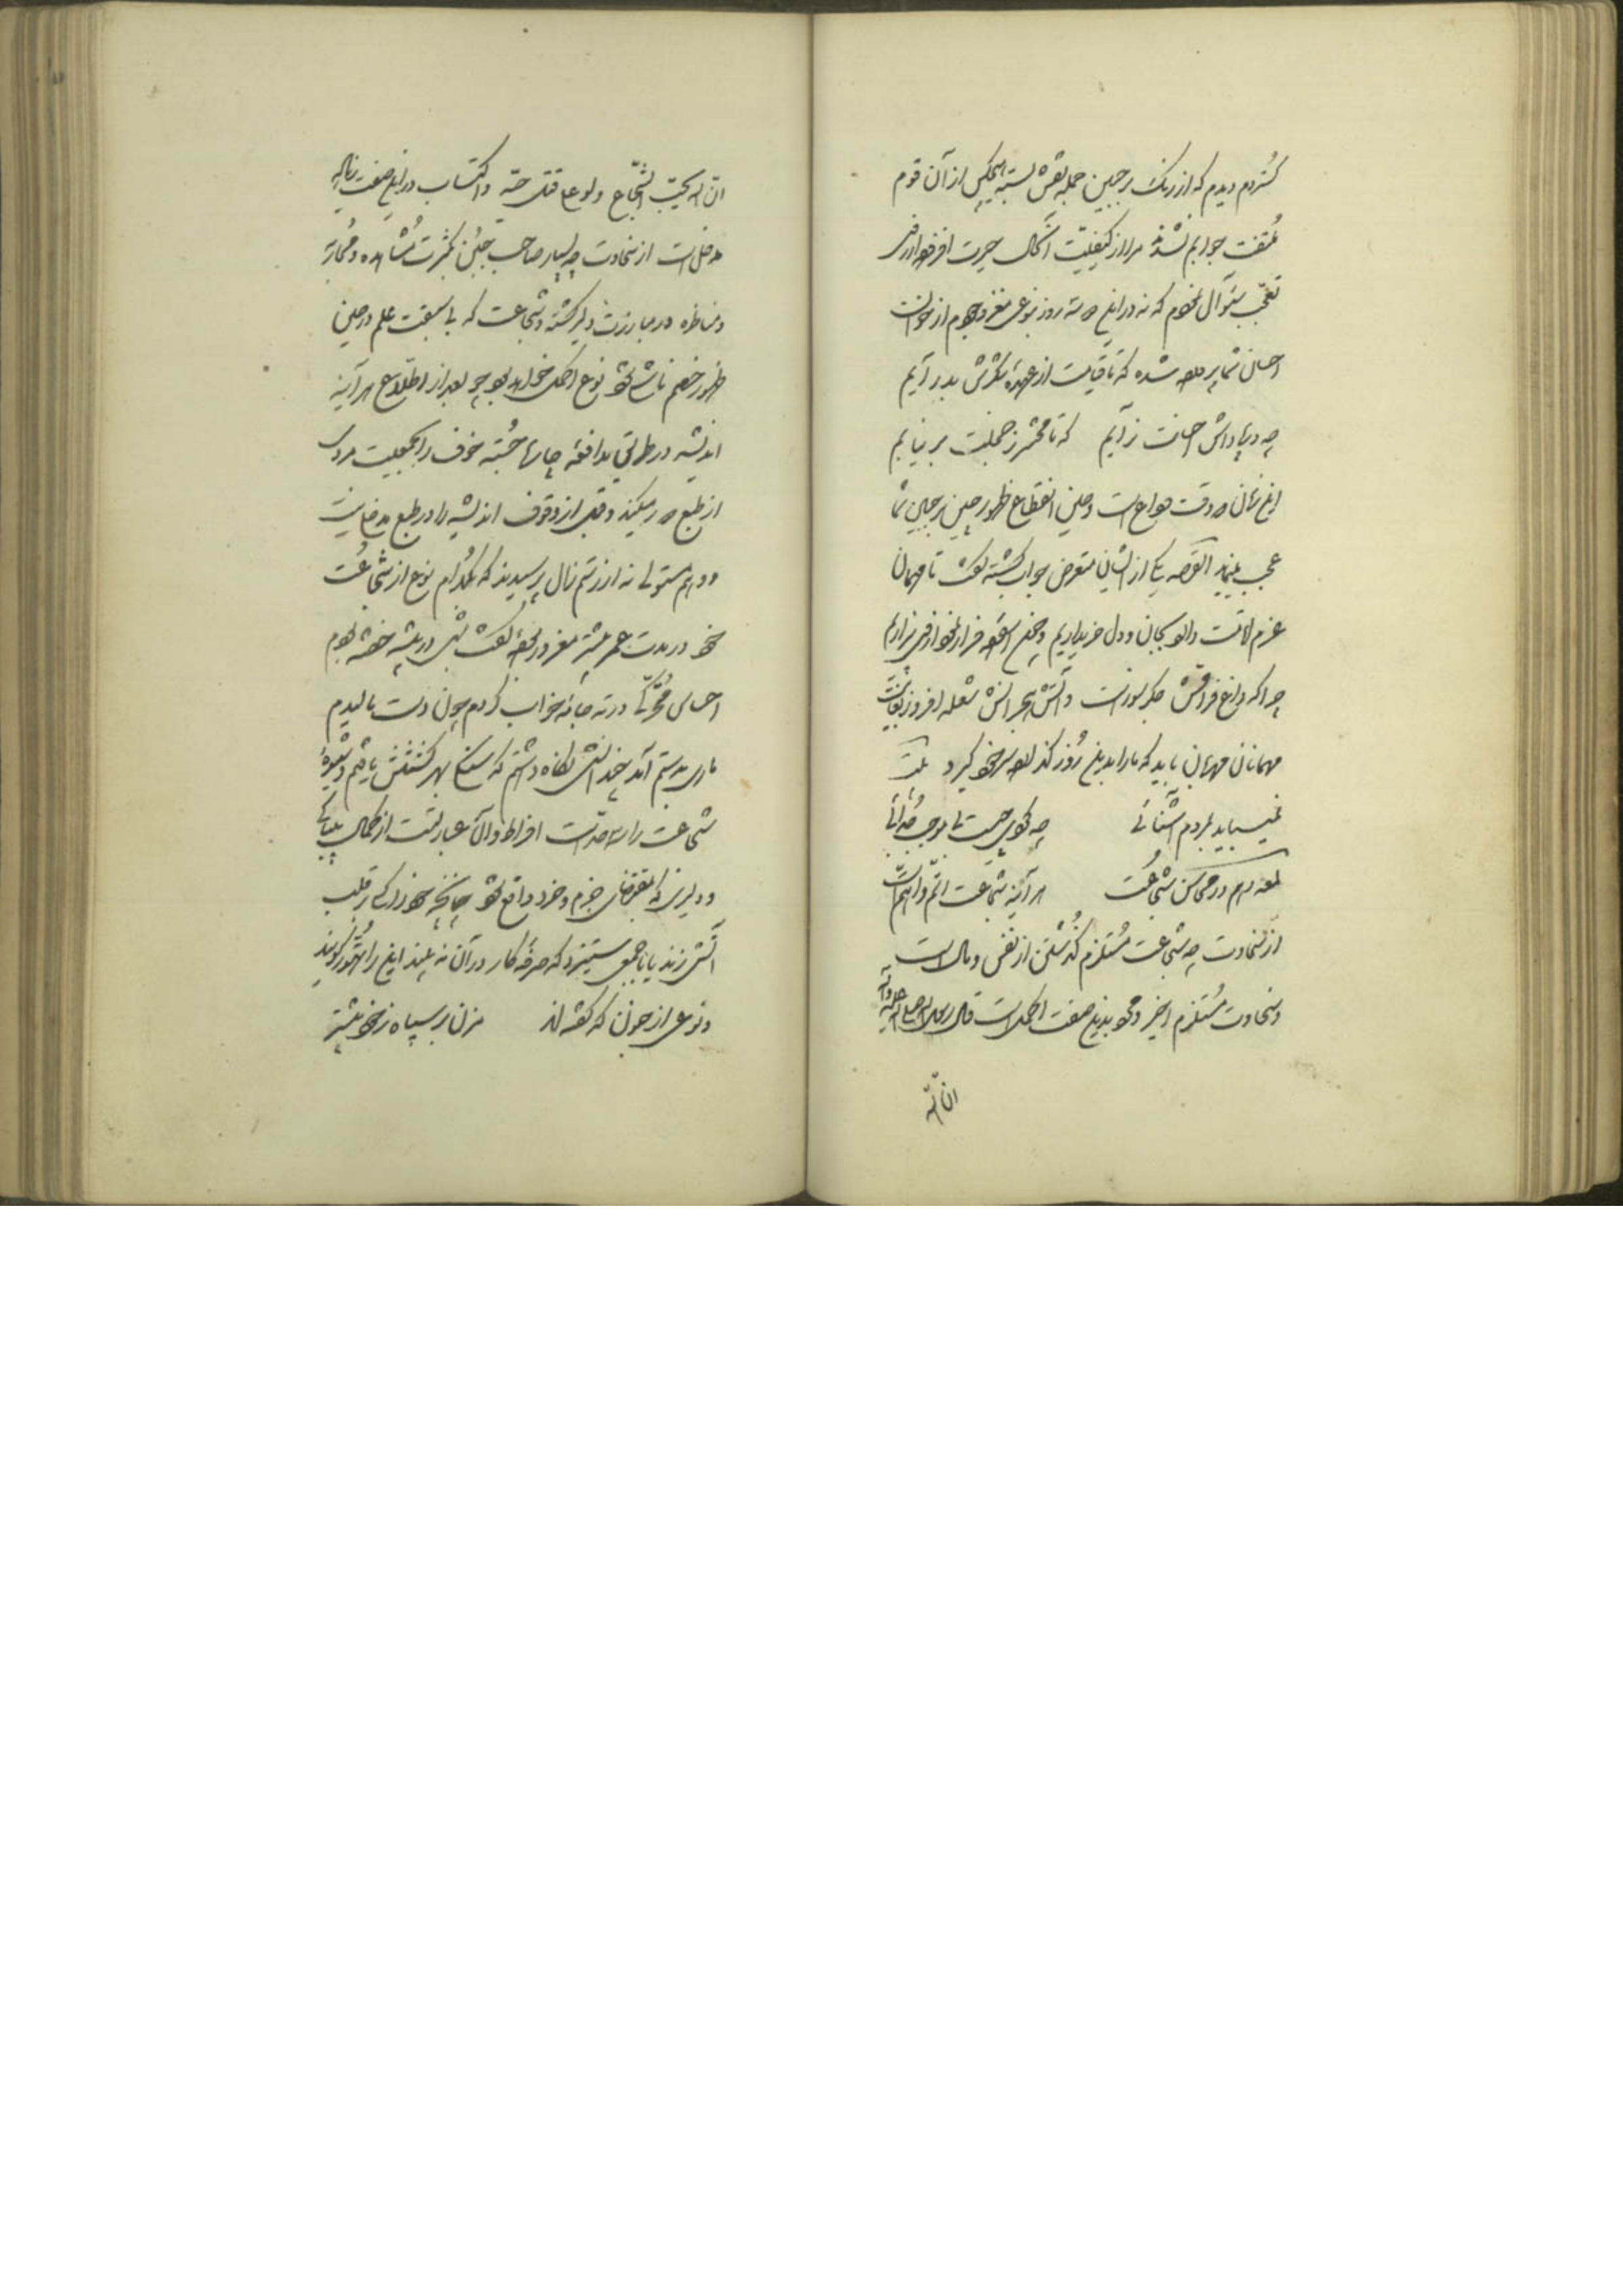 کردم دیدم که از رنگ بر جبین جمله نقش بسته هیچکس از آن قوم
ملتفت جوابم نشدند مرا از کیفیّت آنحال حیرت افزود از فرط
تعجّب سئوال نمودم که نه در این دو سه روز بنوعی مغرور بودم از خوان
احسان شما پرورده شده که تا قیامت از عهدۀ شکرش بدر آیم
چه در پاداش احسانت زآیم که تا محشر ز خجلت بر نیایم
این زمان که وقت وداع است و حین انقطاع ظهور چین بر جبین شما
عجب مینماید القصه یکی از ایشان متعرض جواب گشته گفت تا مهمان
عزم اقامت دارد بجان و دل خریداریم و چون سفر
چرا که داغ فراقش جگر سوز است و آتش هجرانش شعله افروز
مهمانان مهربان باید که ما را بدین روز گذارد سر خود گیرد بیت
نمیباید بمردم آشنائی چه گوئی چیست تا موجب جدائی
لمعه دهم در محاسن شجاعت هر آینه شجاعت اتمّ و اهمّ است
از سخاوت چه شجاعت مُستلزم گذشتن از نفس و مال است
و سخاوت مُستلزم اخیر و محمود بدین صفت اکمل است قال رسول الله صلی الله علیه وآله
انّ الله
انّ الله یحبّ الشجّاع ولو علی قتل حیّة و اکتساب در این صفت
مدخل است از سخاوت چه بسیار صاحب جُبن بکثرت مُشاهده و مُحاربه
و مناظره در مبارزت دلیر گشته و شجاعت که با سبقت علم در حین
ظهور خصم ناشی شود نوع اکمل خواهد بود چه بعد از اطّلاع هر آینه
اندیشه در طریق مدافعه چارها جُسته خوف را بجمعیت مردی
از طبع دور میکند و قبل از وقوف اندیشه را در طبع مدخلی نیست
و وهم مستولی نه از رستم زال پرسیدند که بکدام نوع از شجاعت
خود در مدت عمر بیشتر مغرور بودۀ گفت شبی در بیشه خفته بودم
احساس محرّکی در ته جامه خواب کردم چون دست مالیدم
ماری بدستم آمد چندانش نگاه داشتم که سنگی بهر کشتنش یافتم و شیوۀ
شجاعت را سه حدّ است افراط و آن عبارتست از کمال بیباکی
و دلیری که بمقتضای حزم و خرد واقع نشود چنانچه خود را بر قلب
آتش زند یا با جمعی ستیزد که صرفۀ کار در آن نه بیند این را تهوّر گویند
و نوعی از جنون که گفته‌اند مزن بر سپاه ز خود بیشتر